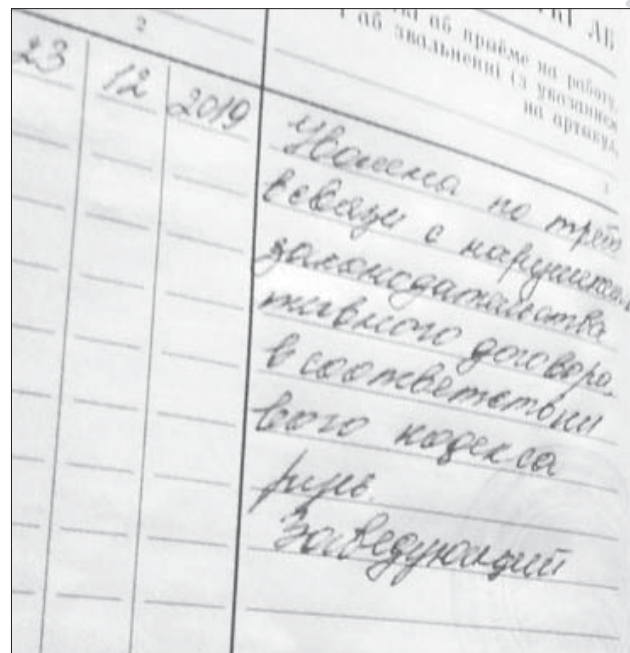 КІ АБ
аб приёме на работу,
і аб звальненні (з указаннем
на артыкул,
2
3
23 12 2019
Уволена по треб
в связи с нарушением
законодательства
тивного договора,
в соответствии
вого кодекса
русь.
Заведующий